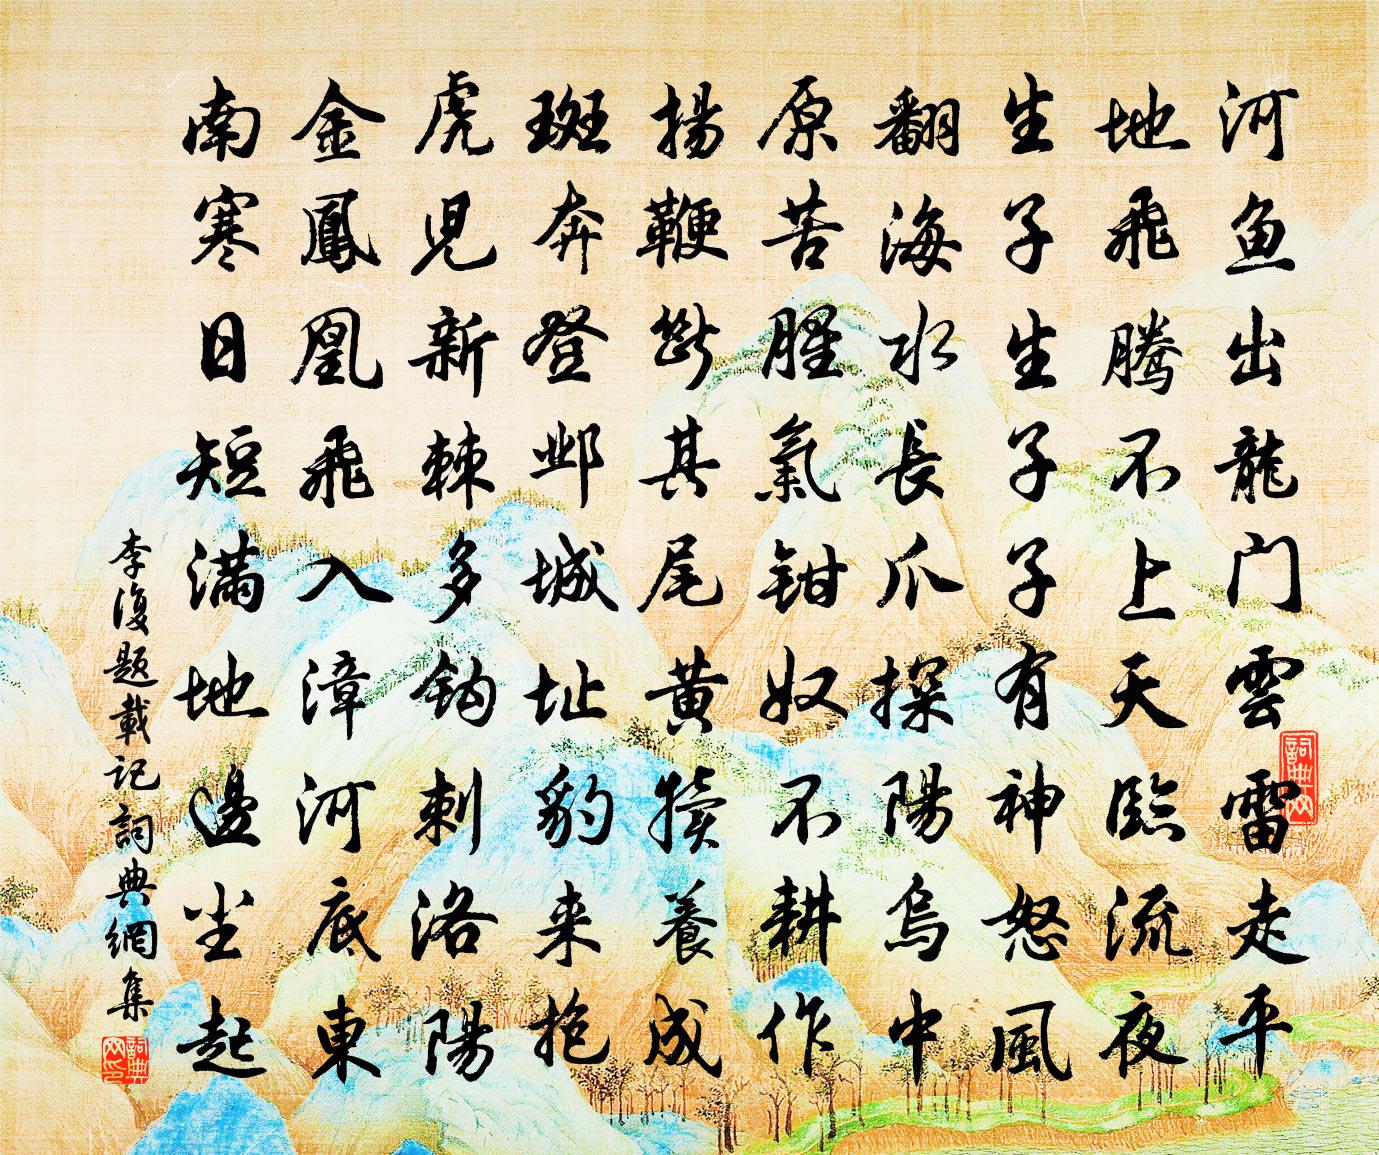 河鱼出龍门雲雷走平
地飛騰不上天臨流夜
生子生子子有神怒風
翻海水長爪探陽烏中
原苦腥氣鉗奴不耕作
揚鞭斷其尾黄犢養成
斑奔登邺城址豹来抱
虎児新棘多鈎刺洛陽
金鳳凰飛入漳河底東
南寒日短满地邊尘起
李復題載記詞典網集
詞典网
詞典网印